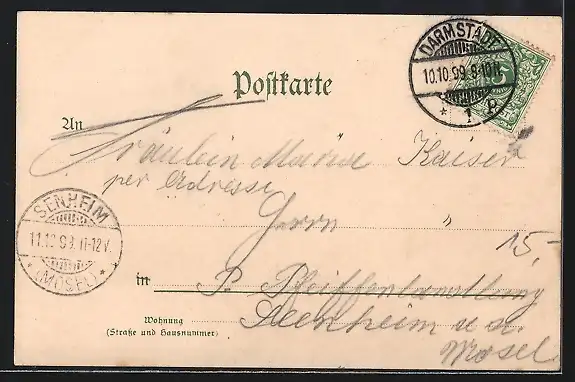 DARMSTADT
10.10.99. 9-10 N.
* 1 P.
Postkarte
An
Fräulein Maria Kaiser
per Adresse
Herrn "
SENHEIM
11.10.99. 11-12 V.
* (MOSEL) *
15,-
in P.
Wohnung
(Straße und Hausnummer)
Seenheim a. d.
Mosel